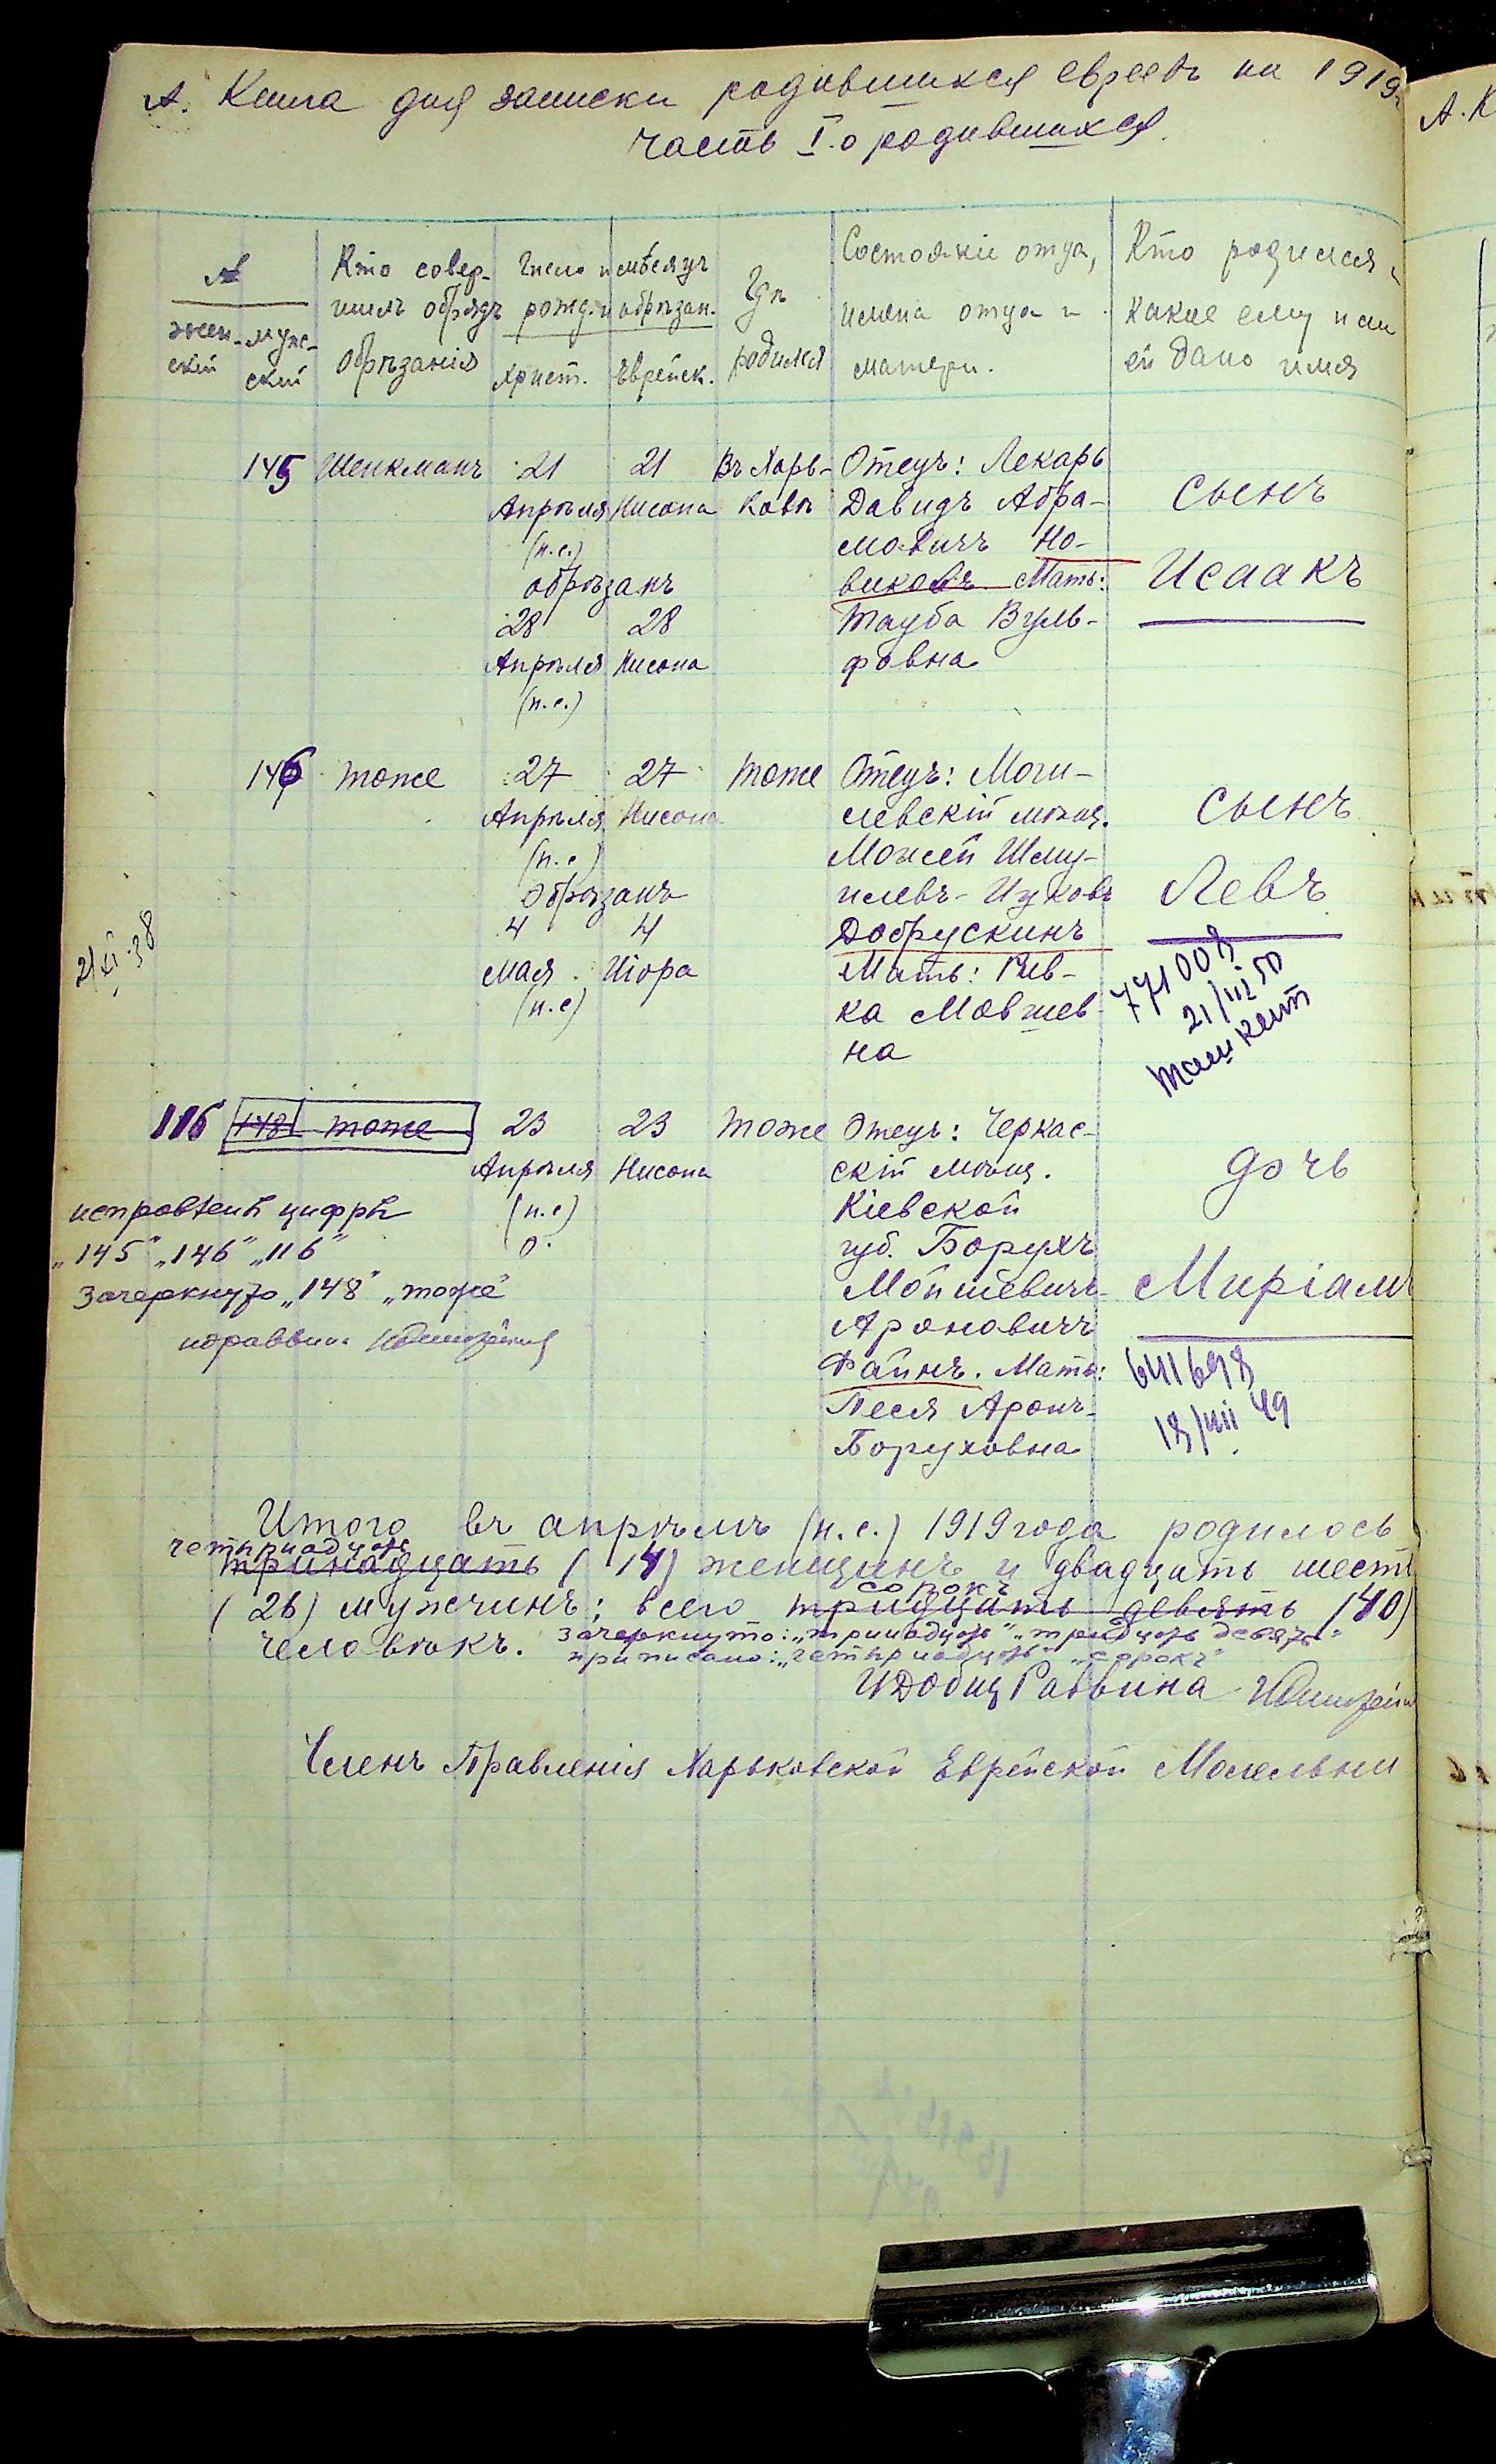 А. Книга для записки родившихся евреевъ на 1919
часть I. о родившихся.
№
жен-
скій
муж-
скій
Кто совер-
шилъ обрядъ
обрѣзанія
Число и мѣсяцъ
рожд. и обрѣзан.
Христ. Еврейск.
Гдѣ
родился
Состояніе отца,
имена отца и
матери.
Кто родился,
какое ему или
ей дано имя
145 Шенкманъ 21 21 Въ Харь- Отецъ: Лекарь
Апрѣля Нисона ковѣ Давидъ Абра-
сынъ
(н.с.) мовичъ Но-
обрѣзанъ виковъ Мать: Исаакъ
28 28 Тауба Вуль-
Апрѣля Нисона фовна
(н.с.)
146 тоже 27 27 тоже Отецъ: Моги-
Апрѣля Нисона левскій мѣщ. сынъ
(н.с) Мойсей Шму-
обрѣзанъ илевъ-Ицковъ Левъ
4 4 Добрускинъ
мая Ііора Мать: Рив-
(н.с) ка Мовшев-
на
21/XI 38
771008
21/III 50
Ташкент
116 148 тоже 23 23 тоже Отецъ: Черкас-
Апрѣля Нисона скій мѣщ. дочь
(н.с) Кіевской
0. губ. Борухъ
Мойшевичъ- Миріамъ
Ароновичъ
Файнъ. Мать:
Песя Аронъ-
Боруховна
641698
18/VIII 49
исправлены цифры
„145" „146" „116"
Зачеркнуто „148" „тоже"
Итого въ апрѣлѣ (н.с.) 1919 года родилось
четырнадцать
тринадцать (14) женщинъ и двадцать шесть
сорокъ
(26) мужчинъ; всего тридцать девять (40)
человѣкъ. Зачеркнуто: „тринадцать" „тридцать девять"
приписано: „четырнадцать" „сорокъ"
И Д Общ Раввина
Членъ Правленія Харьковской Еврейской Молельни